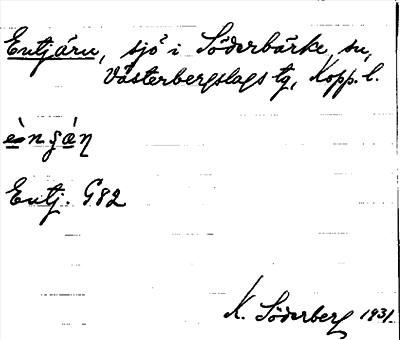 Entjärn, sjö i Söderbärke sn,
Västerbergslags tg, Kopp. l.
Entj. G82
K. Söderberg 1931.